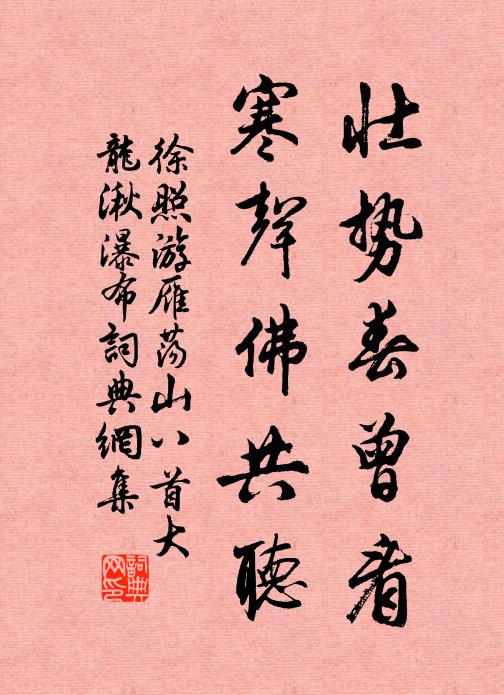 壮势春曾看
寒聲佛共聽
徐照游雁荡山八首大
龍湫瀑布詞典網集
詞典
网印